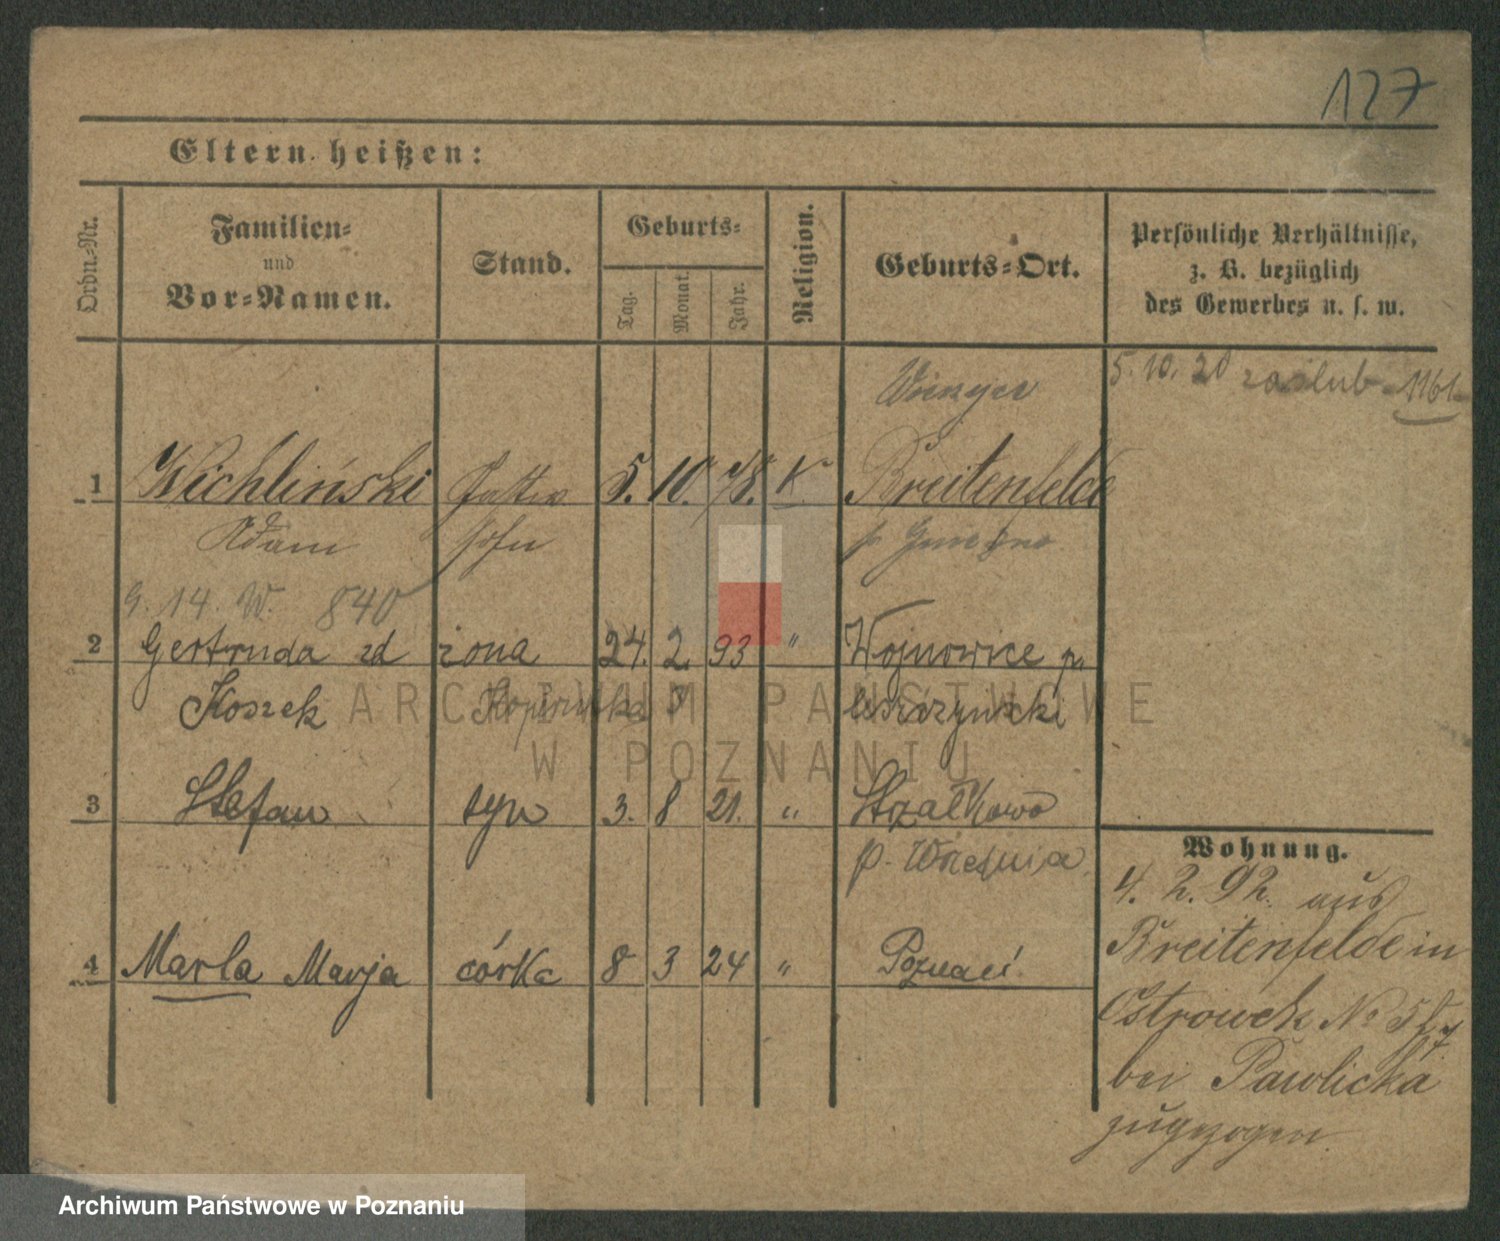 127
Eltern heißen:
Ordn.-Nr.
Familien-
und
Vor-Namen.
Stand.
Geburts-
Tag.
Monat.
Jahr.
Religion.
Geburts-Ort.
Persönliche Verhältnisse,
z. B. bezüglich
des Gewerbes u. s. w.
5. 10. 20 zaślub 1161
1 Wichliński 5. 10. 78. K. Breitenfelde
Adam sohn
9. 14. W. 840
2 Gertruda zd żona 24. 2. 93 " Wojnowice p.
Koszek
3 Stefan syn 3. 8 21. " Strzałkowo
p. Września
4 Marla Marja córka 8 3 24 " Poznań
Wohnung.
4. 2. 92. aus
Breitenfelde in
Ostrowek No
bei Pawlicka
zugezogen
ARCHIWUM PAŃSTWOWE
W POZNANIU
Archiwum Państwowe w Poznaniu